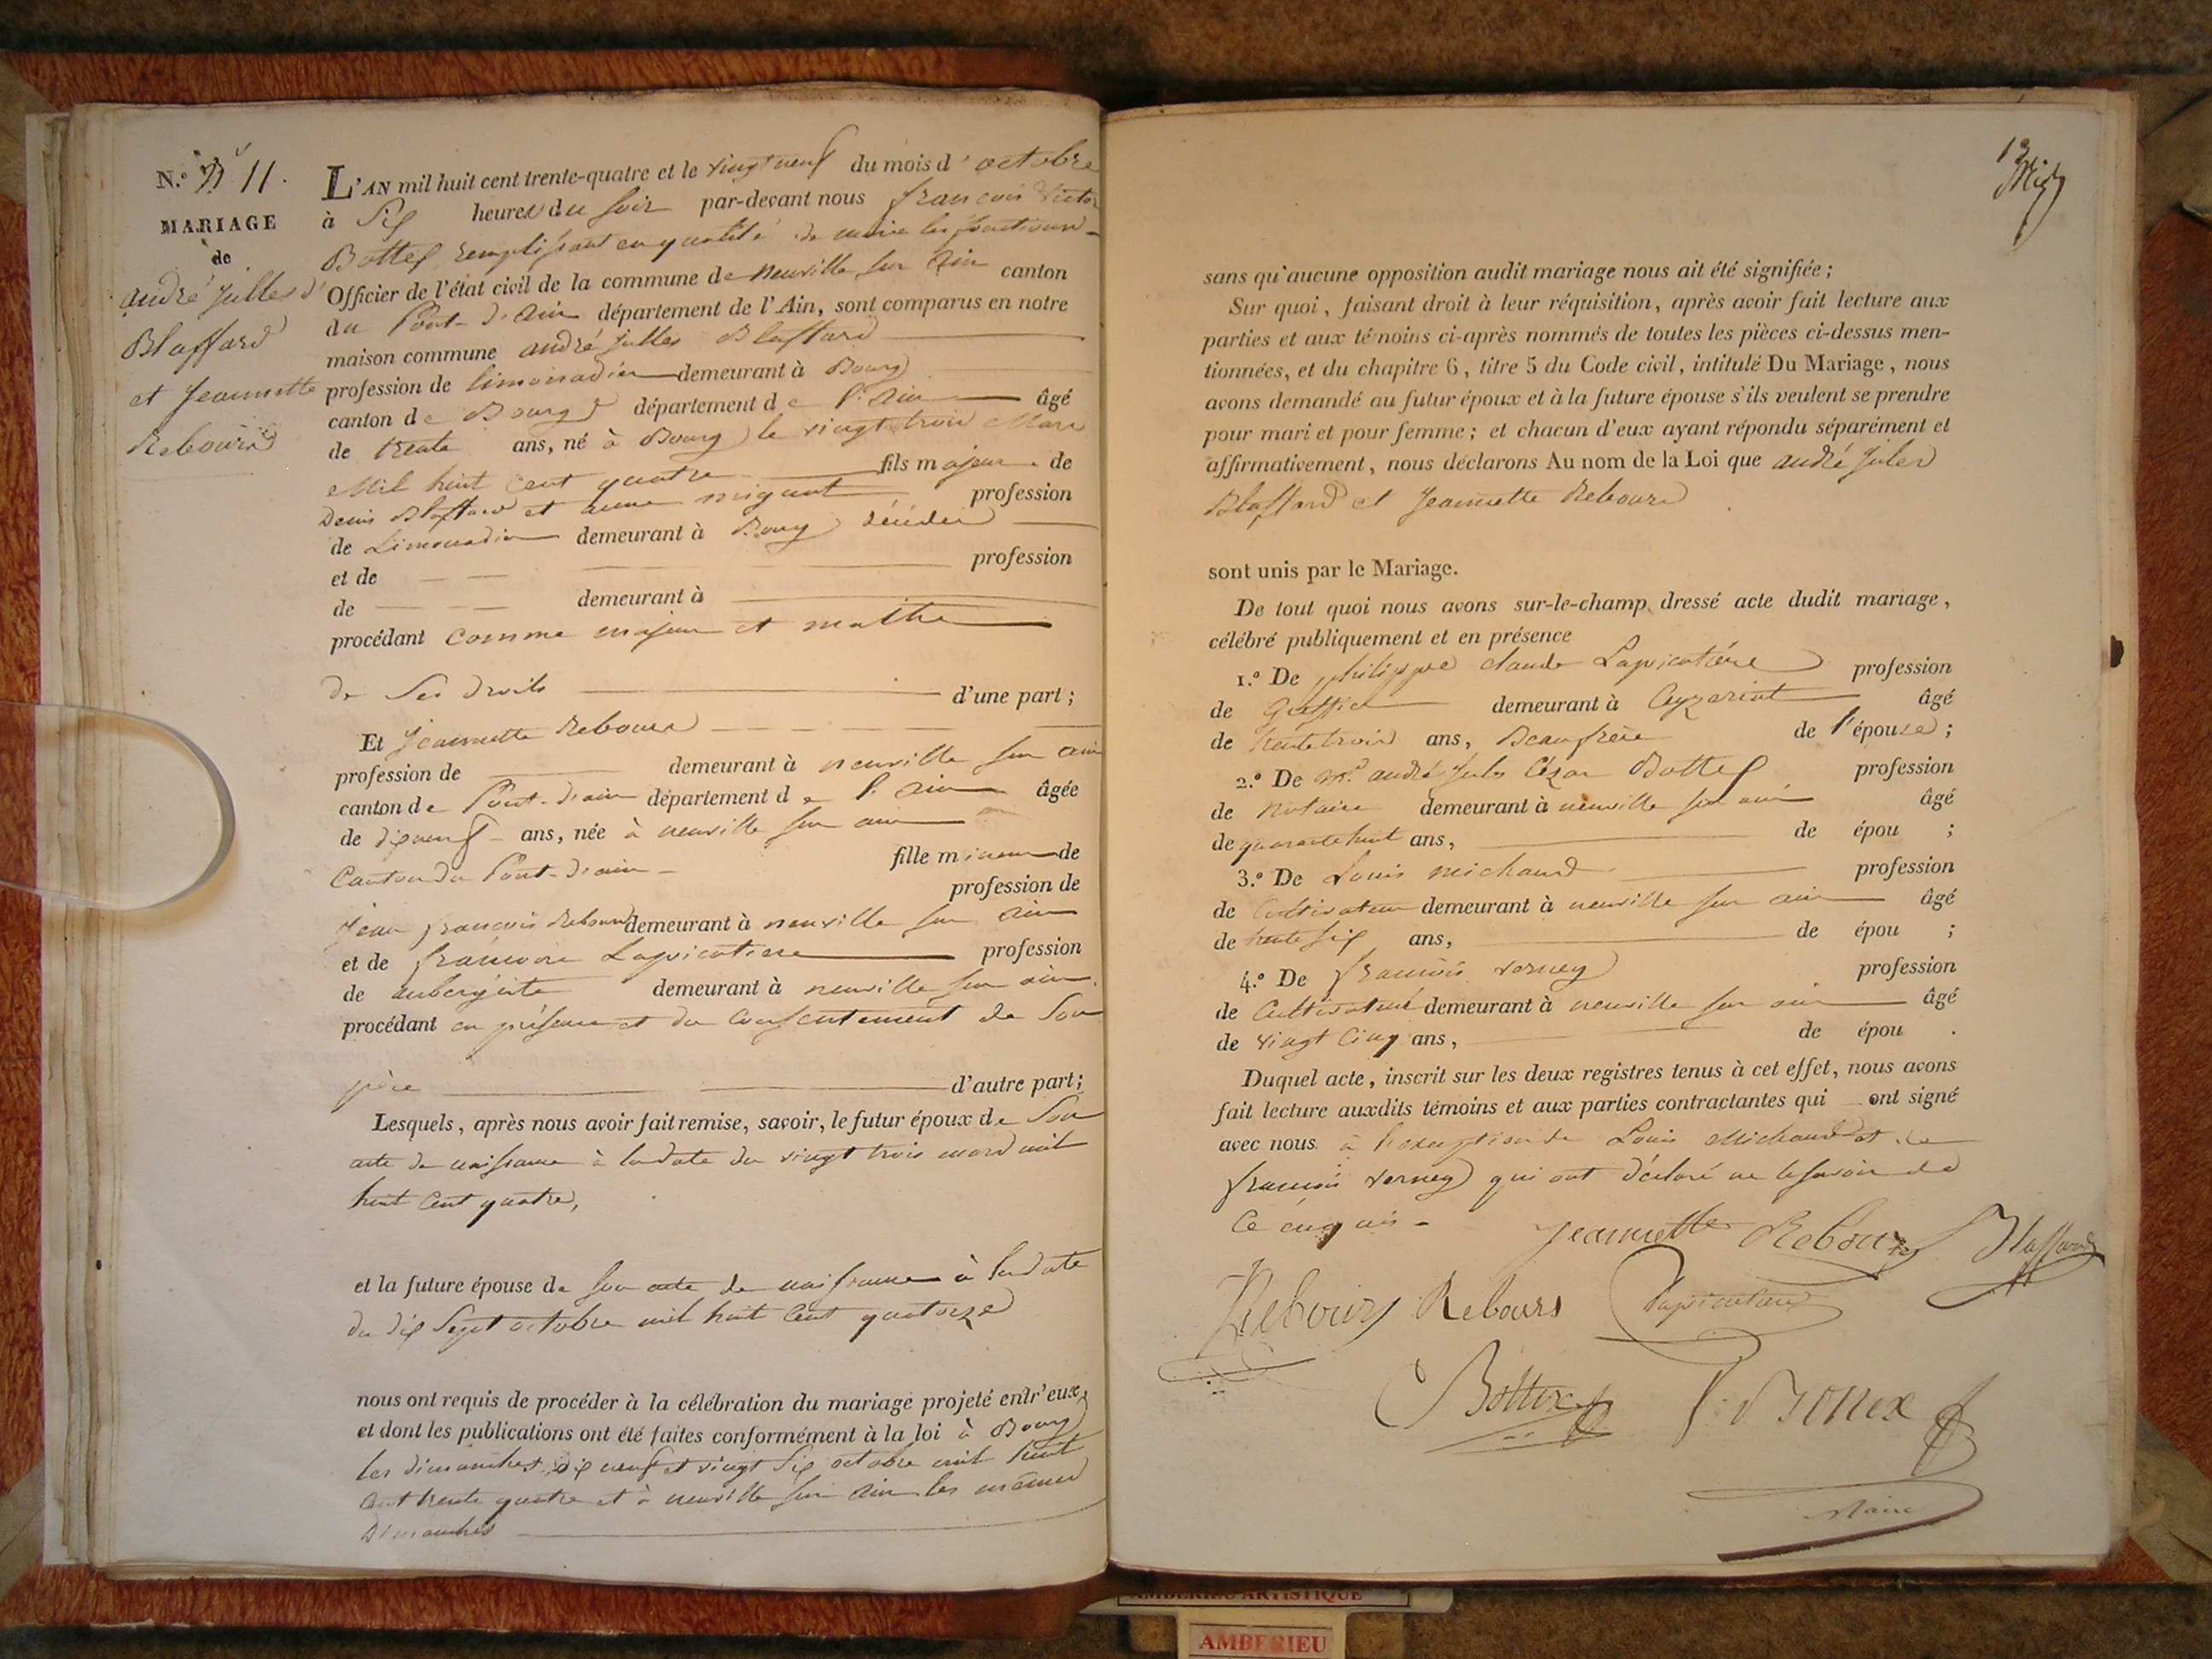 N.º 11.
MARIAGE
de
andré julles
Blaffard
et Jeannette
Rebours
L'AN mil huit cent trente-quatre et le vingt neuf du mois d'octobre
à Six heures du soir par-devant nous françois Victor
Bottex remplissant en qualité de maire les fonctions
Officier de l'état civil de la commune de Neuville sur Ain canton
du Pont-d'ain département de l'Ain, sont comparus en notre
maison commune andré julles Blaffard
profession de limonadier demeurant à Bourg
canton de Bourg département de l'ain âgé
de trente ans, né à Bourg le vingt trois Mars
Mil huit cent quatre fils majeur de
Denis Blaffard et anne migunt profession
de Limonadier demeurant à Bourg décédés
et de profession
de demeurant à
procédant comme majeur et maitre
de ses droits d'une part;
Et Jeannette Rebours
profession de demeurant à neuville sur ain
canton de Pont-d'ain département de l'Ain âgée
de dixneuf ans, née à neuville sur ain
Canton du Pont-d'ain fille mineure de
profession de
Jean françois Rebours demeurant à neuville sur ain
et de françoise Lapicotiere profession
de aubergiste demeurant à neuville sur ain
procédant en présence et du consentement de son
père d'autre part;
Lesquels, après nous avoir fait remise, savoir, le futur époux de son
acte de naissance à la date du vingt trois mars mil
huit cent quatre,
et la future épouse de son acte de naissance à la date
du dix sept octobre mil huit cent quatorze
nous ont requis de procéder à la célébration du mariage projeté entr'eux,
et dont les publications ont été faites conformément à la loi à Bourg
les dimanches dix neuf et vingt six octobre mil huit
cent trente quatre et à neuville sur Ain les mêmes
Dimanches
sans qu'aucune opposition audit mariage nous ait été signifiée;
Sur quoi, faisant droit à leur réquisition, après avoir fait lecture aux
parties et aux témoins ci-après nommés de toutes les pièces ci-dessus men-
tionnées, et du chapitre 6, titre 5 du Code civil, intitulé Du Mariage, nous
avons demandé au futur époux et à la future épouse s'ils veulent se prendre
pour mari et pour femme; et chacun d'eux ayant répondu séparément et
affirmativement, nous déclarons Au nom de la Loi que andré jules
Blaffard et Jeannette Rebours
sont unis par le Mariage.
De tout quoi nous avons sur-le-champ dressé acte dudit mariage,
célébré publiquement et en présence
1.º De philippe claude Lapicotiére profession
de Greffier demeurant à Ceyzeriat âgé
de trente trois ans, Beaufrère de l'épouse;
2.º De mr. andré Jules César Bottex profession
de Notaire demeurant à neuville sur ain âgé
de quarante huit ans, de épou ;
3.º De Louis michaud profession
de Cultivateur demeurant à neuville sur ain âgé
de trente six ans, de épou ;
4.º De françois verney profession
de Cultivateur demeurant à neuville sur ain âgé
de vingt cinq ans, de épou .
Duquel acte, inscrit sur les deux registres tenus à cet effet, nous avons
fait lecture auxdits témoins et aux parties contractantes qui ont signé
avec nous à l'exception de Louis Michaud et de
françois verney qui ont déclaré ne le savoir de
ce enquis -
Jeannette Rebours Blaffard
Rebours Rebours Lapicotiere
Bottex Bottex
Maire
AMBERIEU ARTISTIQUE
AMBERIEU